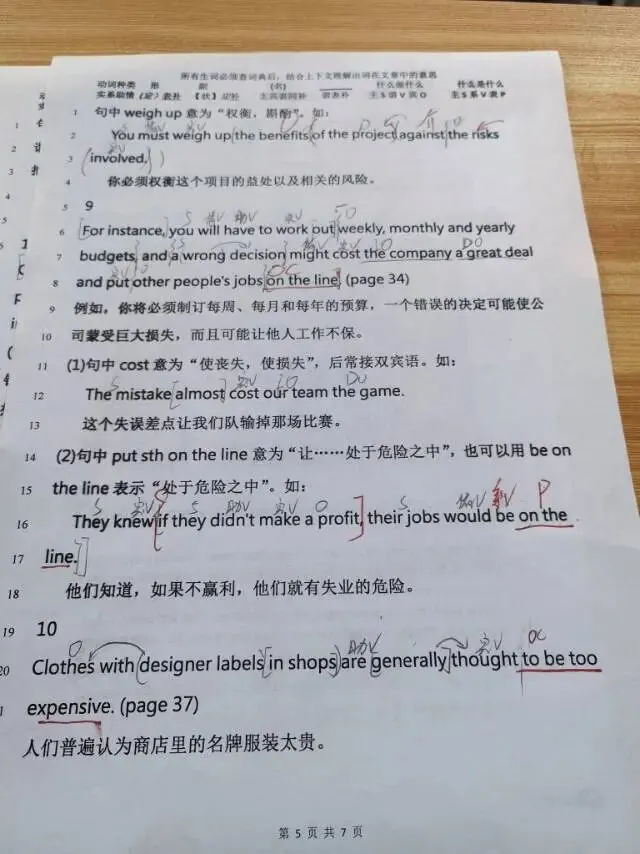 所有生词必须查词典后，结合上下文理解出词在文章中的意思
动词种类 形 副 (名) 什么做什么 什么是什么
实系助情 (定) 表补 【状】定补 主宾表同补 谓表补 主 S 谓 V 宾 O 主 S 系 V 表 P
1 句中 weigh up 意为“权衡，斟酌”。如：
2 You must weigh up the benefits of the project against the risks
3 involved.
4 你必须权衡这个项目的益处以及相关的风险。
5 9
S 情V 助V 实V O
6 For instance, you will have to work out weekly, monthly and yearly
S 情V 实V IO DO
7 budgets, and a wrong decision might cost the company a great deal
实V O OC
8 and put other people's jobs on the line. (page 34)
9 例如，你将必须制订每周、每月和每年的预算，一个错误的决定可能使公
10 司蒙受巨大损失，而且可能让他人工作不保。
11 (1)句中 cost 意为“使丧失，使损失”，后常接双宾语。如：
S 实V IO DO
12 The mistake almost cost our team the game.
13 这个失误差点让我们队输掉那场比赛。
14 (2)句中 put sth on the line 意为“让……处于危险之中”，也可以用 be on
15 the line 表示“处于危险之中”。如：
S S 助V 实V O S 情V 系V P
16 They knew if they didn't make a profit, their jobs would be on the
17 line.
18 他们知道，如果不赢利，他们就有失业的危险。
19 10
O 助V 实V OC
20 Clothes with designer labels in shops are generally thought to be too
1 expensive. (page 37)
人们普遍认为商店里的名牌服装太贵。
第 5 页 共 7 页